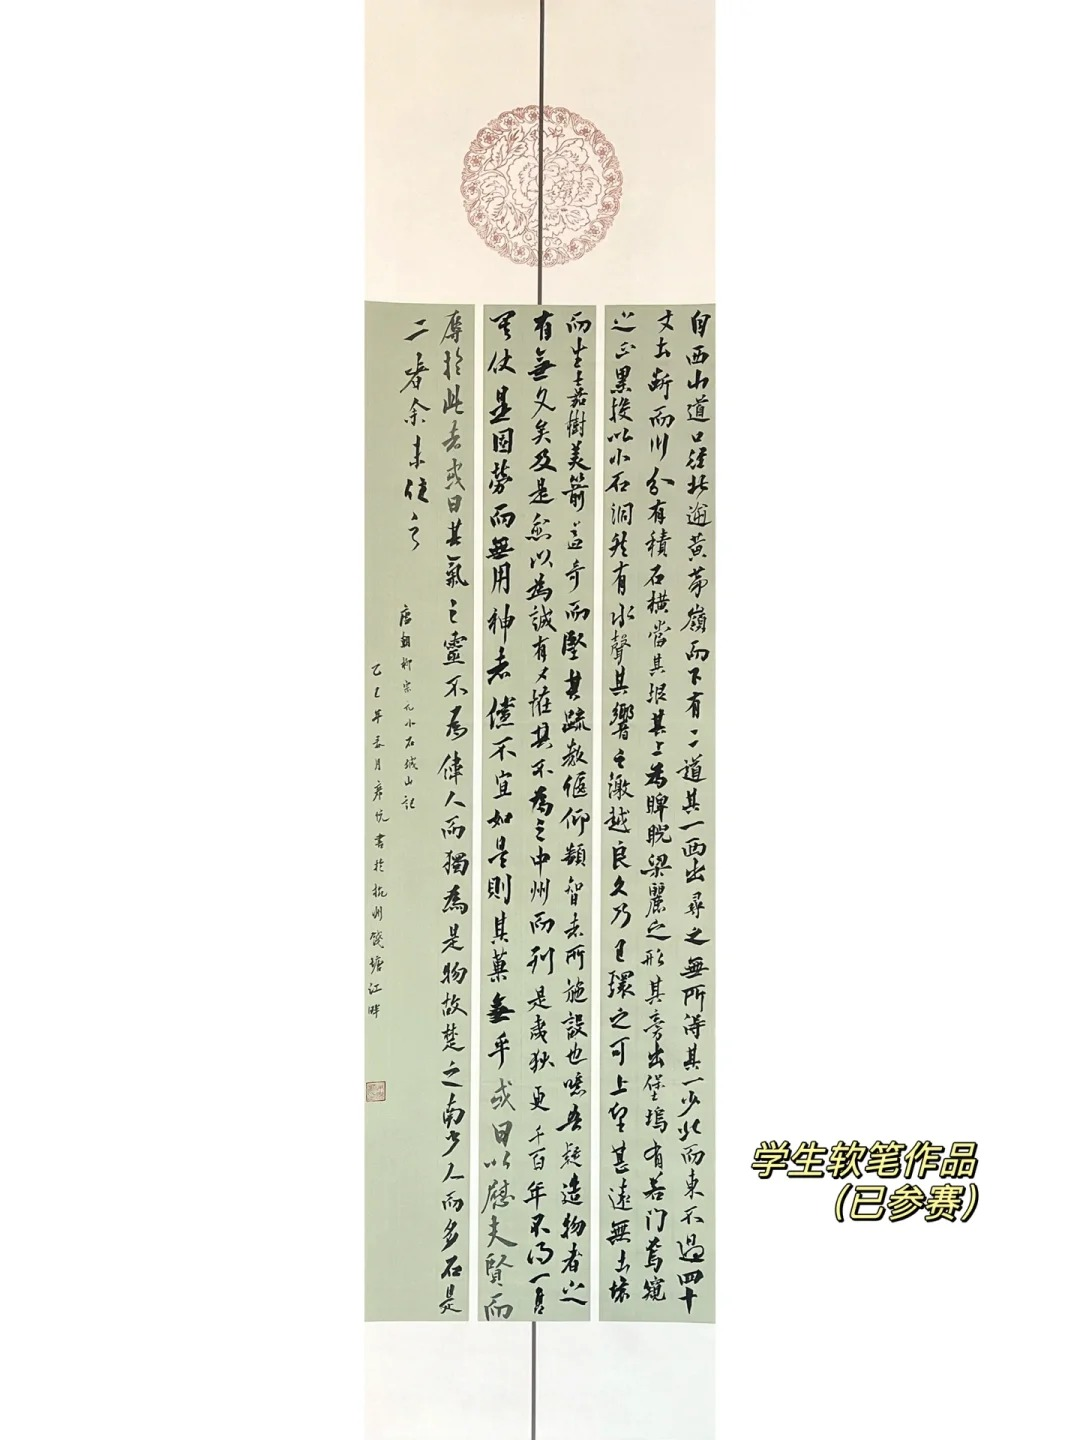 自西山道口徑北逾黃茅嶺而下有二道其一西出尋之無所得其一少北而東不過四十
丈土斷而川分有積石橫當其垠其上為睥睨梁麗之形其旁出堡塢有若門焉窺
之正黑投以小石洞然有水聲其響之激越良久乃已環之可上望甚遠無土壤
而生嘉樹美箭益奇而堅其疏數偃仰類智者所施設也噫吾疑造物者之
有無久矣及是愈以為誠有又怪其不為之中州而列是夷狄更千百年不得一售
其伎是固勞而無用神者儻不宜如是則其果無乎或曰以慰夫賢而
辱於此者或曰其氣之靈不為偉人而獨為是物故楚之南少人而多石是
二者余未信之
唐朝柳宗元小石城山記
乙巳年 月彥 書於杭州錢塘江畔
学生软笔作品
（已参赛）